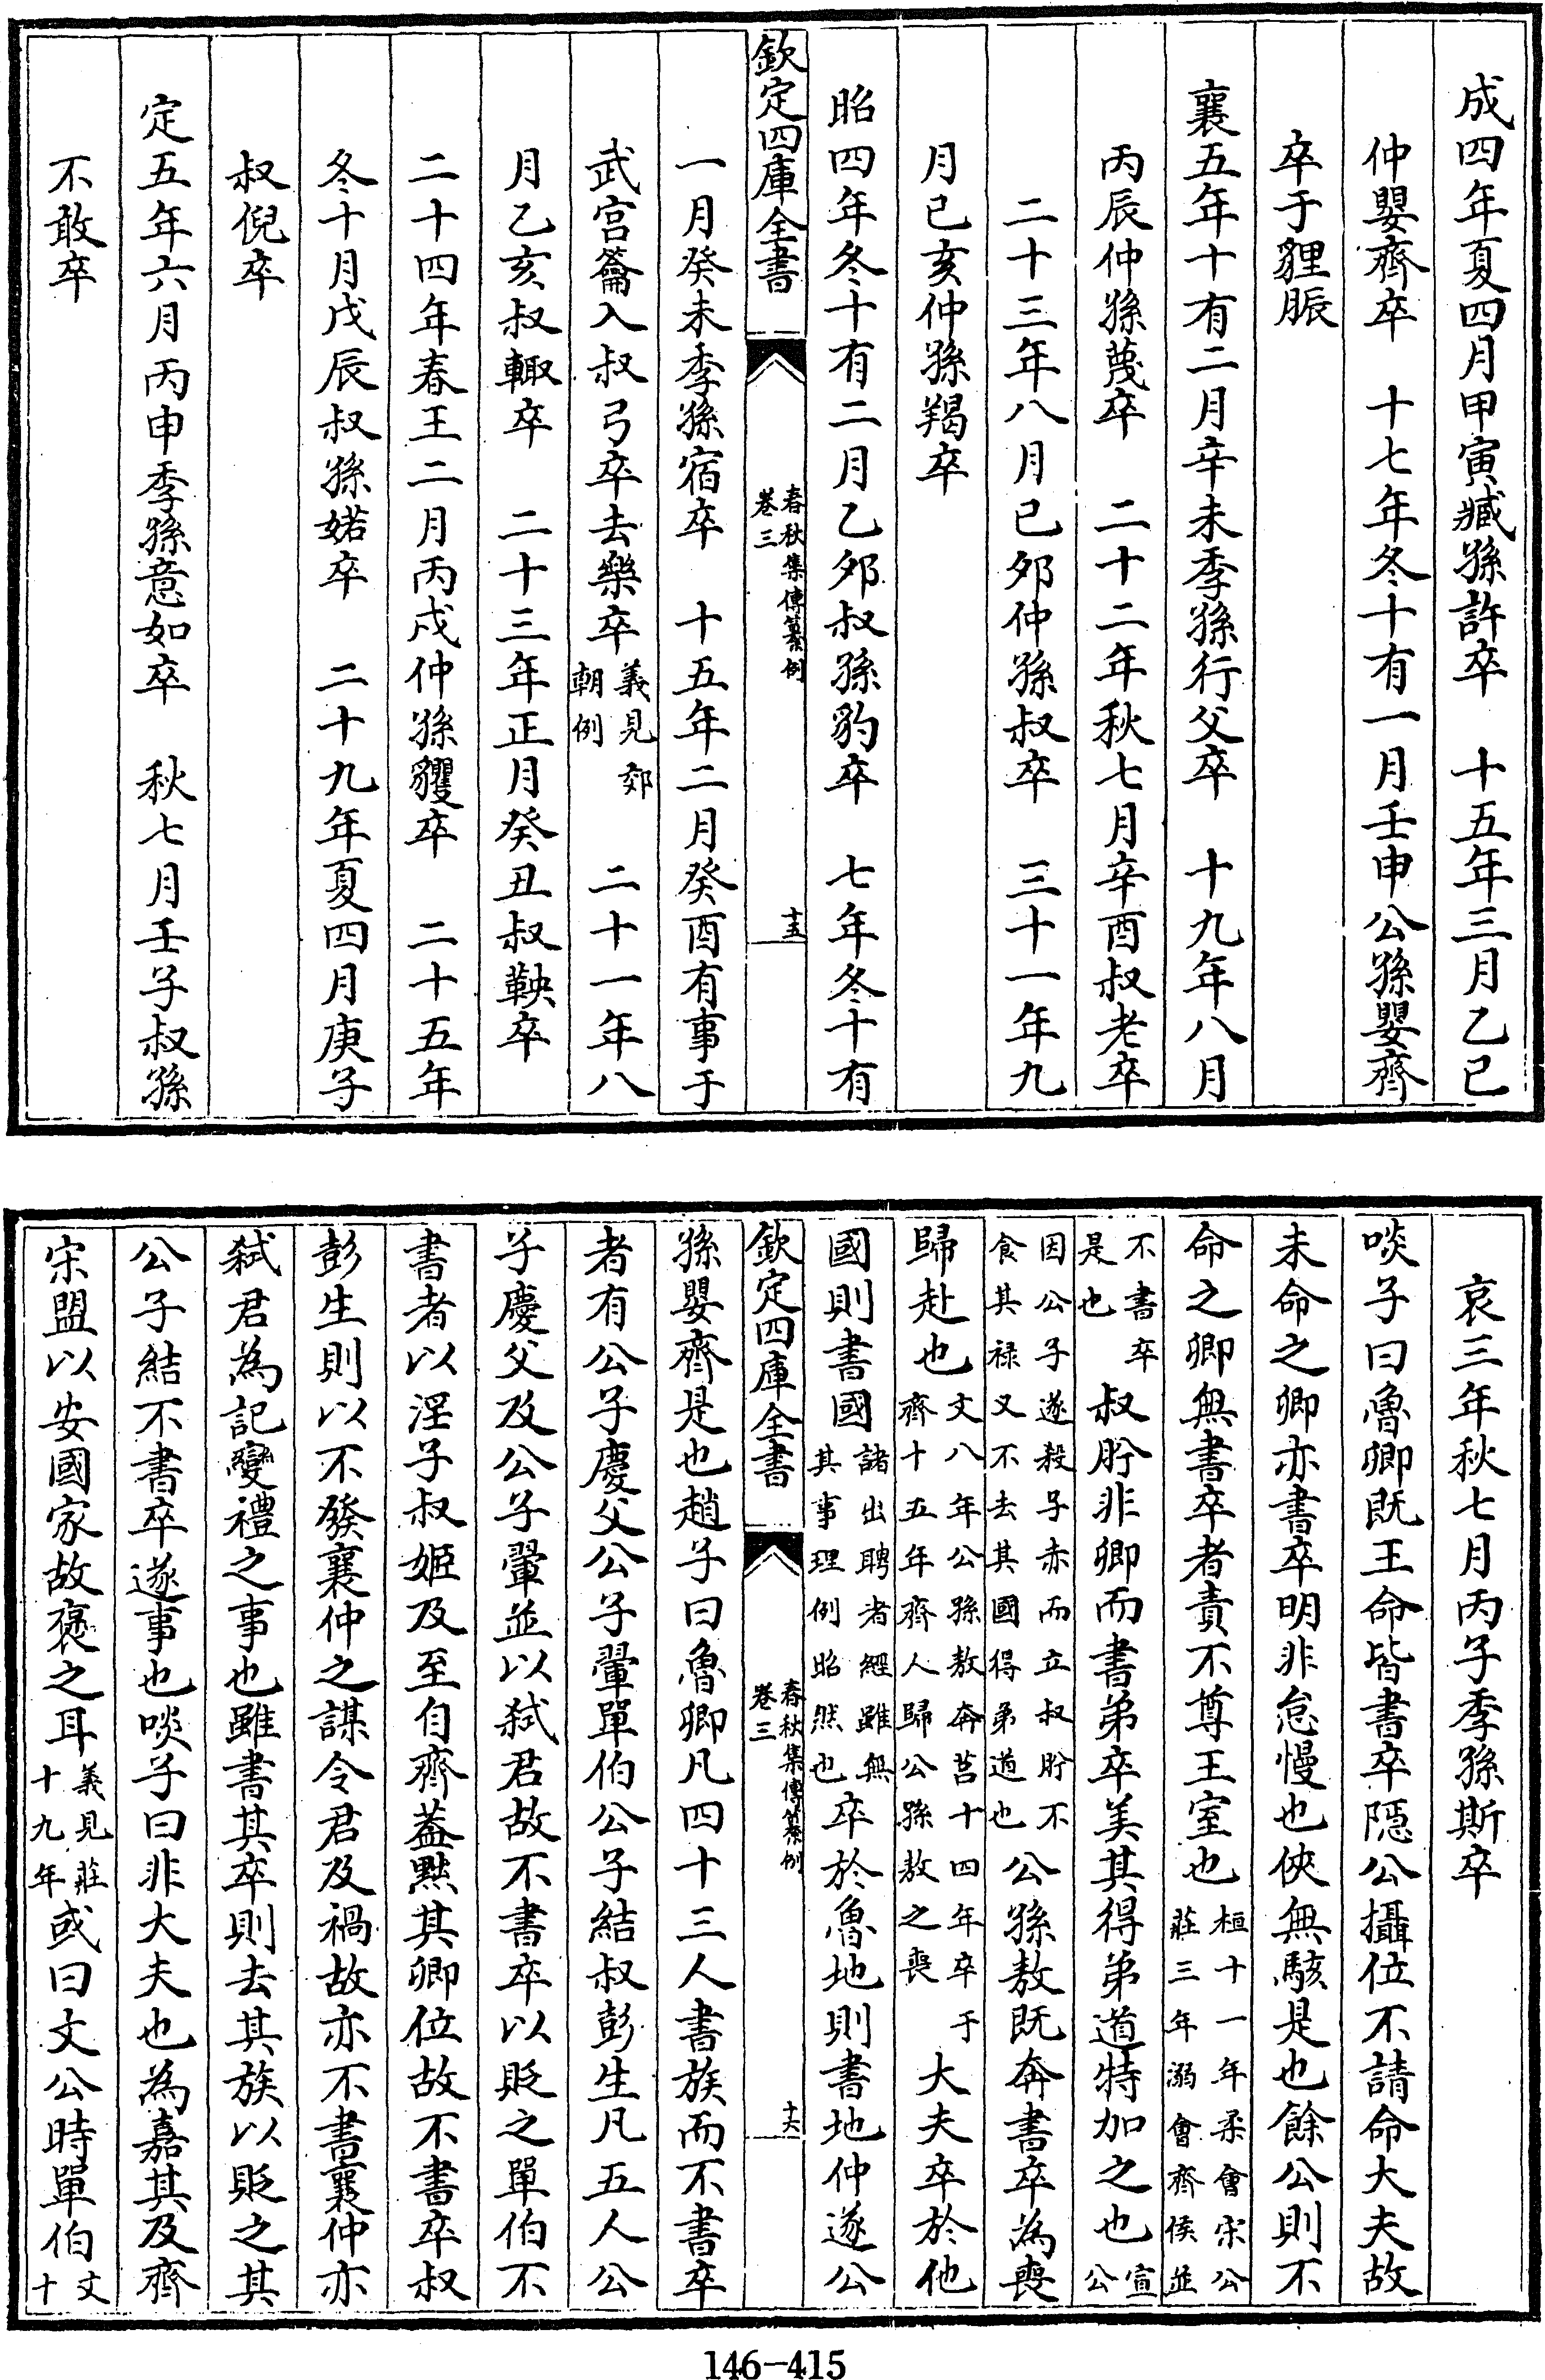 成四年夏四月甲寅臧孫許卒　十五年三月乙巳
仲嬰齊卒　十七年冬十有一月壬申公孫嬰齊
卒于貍脤
襄五年十有二月辛未季孫行父卒　十九年八月
丙辰仲孫蔑卒　二十二年秋七月辛酉叔老卒
二十三年八月己夘仲孫叔卒　三十一年九
月己亥仲孫羯卒
昭四年冬十有二月乙夘叔孫豹卒　七年冬十有
欽定四庫全書　春秋集傳纂例　卷三　十五
一月癸未季孫宿卒　十五年二月癸酉有事于
武宮籥入叔弓卒去樂卒義見郊朝例　二十一年八
月乙亥叔輙卒　二十三年正月癸丑叔鞅卒
二十四年春王二月丙戌仲孫貜卒　二十五年
冬十月戊辰叔孫婼卒　二十九年夏四月庚子
叔倪卒
定五年六月丙申季孫意如卒　秋七月壬子叔孫
不敢卒
哀三年秋七月丙子季孫斯卒
啖子曰魯卿既王命皆書卒隱公攝位不請命大夫故
未命之卿亦書卒明非怠慢也俠無駭是也餘公則不
命之卿無書卒者責不尊王室也桓十一年柔會宋公莊三年溺會齊侯並
不書卒是也　叔肸非卿而書弟卒美其得弟道特加之也宣公
因公子遂殺子赤而立叔肸不食其禄又不去其國得弟道也　公孫敖既奔書卒為喪
歸赴也文八年公孫敖奔莒十四年卒于齊十五年齊人歸公孫敖之喪　大夫卒於他
國則書國諸出聘者經雖無其事理例昭然也卒於魯地則書地仲遂公
欽定四庫全書　春秋集傳纂例　卷三　十六
孫嬰齊是也趙子曰魯卿凡四十三人書族而不書卒
者有公子慶父公子翬單伯公子結叔彭生凡五人公
子慶父及公子翬並以弑君故不書卒以貶之單伯不
書者以淫子叔姬及至自齊葢黜其卿位故不書卒叔
彭生則以不發襄仲之謀令君及禍故亦不書襄仲亦
弑君為記變禮之事也雖書其卒則去其族以貶之其
公子結不書卒遂事也啖子曰非大夫也為嘉其及齊
宋盟以安國家故褒之耳義見莊十九年或曰文公時單伯文十
146-415